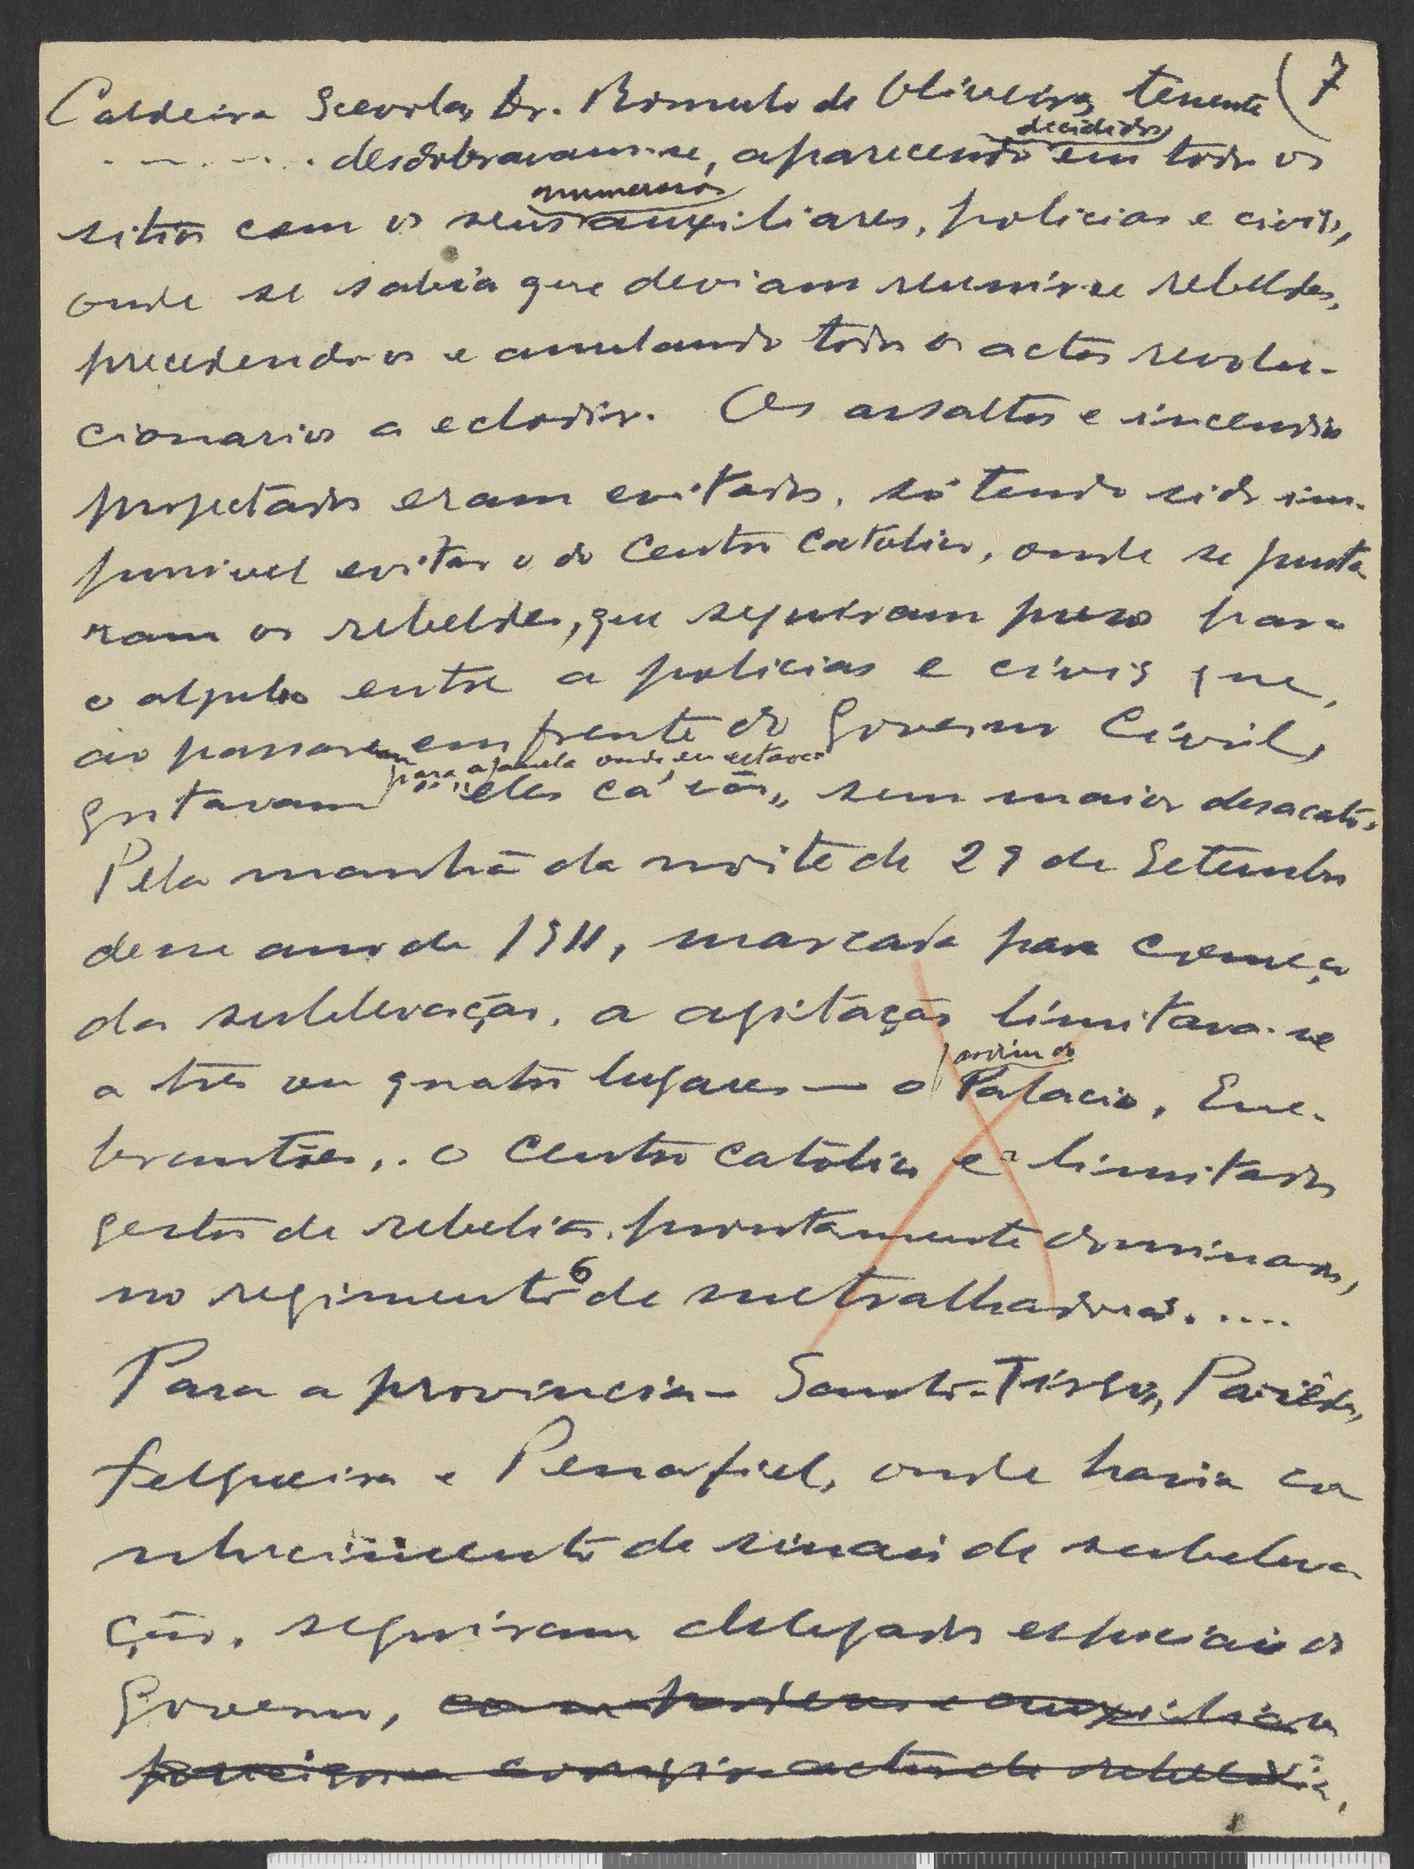 (7
Caldeira Scevola, Dr. Romulo de Oliveira, tenente
. - - . - . . desdobravam-se, aparecendo decididos em todos os
sitios com os seus numerosos auxiliares, policias e civis,
onde se sabia que deviam reunir-se rebeldes,
precedendo-os e anulando todos os actos revolu-
cionarios a eclodir. Os assaltos e incendios
projectados eram evitados, só tendo sido im-
possivel evitar o do Centro Catolico, onde se junta
ram os rebeldes, que seguiram presos para
o aljube entre a policias e civis que,
ao passarem em frente do Governo Civil,
gritavam para a janela onde eu estava "eles cá vão", sem maior desacato.
Pela manhã da noite de 29 de Setembro
desse ano de 1911, marcada para começo
da sublevação, a agitação limitava-se
a tres ou quatro lugares — o jardim do Palacio,
o Centro Católico e a limitados
gestos de rebelião, prontamente dominados,
no regimento 6 de metralhadoras. ....
Para a provincia - Santo-Tirso, Parêdes,
Felgueira e Penafiel, onde havia co
nhecimento de sinais de subleva
ção, seguiram delegados especiais do
Governo, com poderes e auxiliares
para corrigir actos de rebeldia,